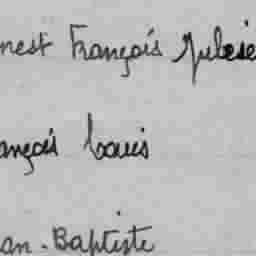 nest François Jules
ançois Louis
an-Baptiste